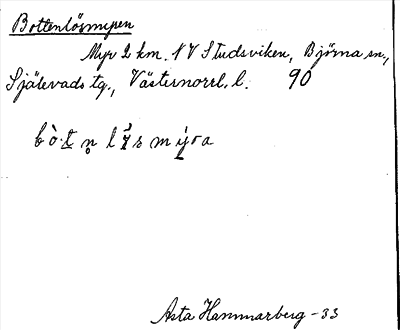 Bottenlösmyren
Myr 2 km. NV Studsviken, Björna sn.,
Själevads tg., Västernorrl. l. 90
Asta Hammarberg -33